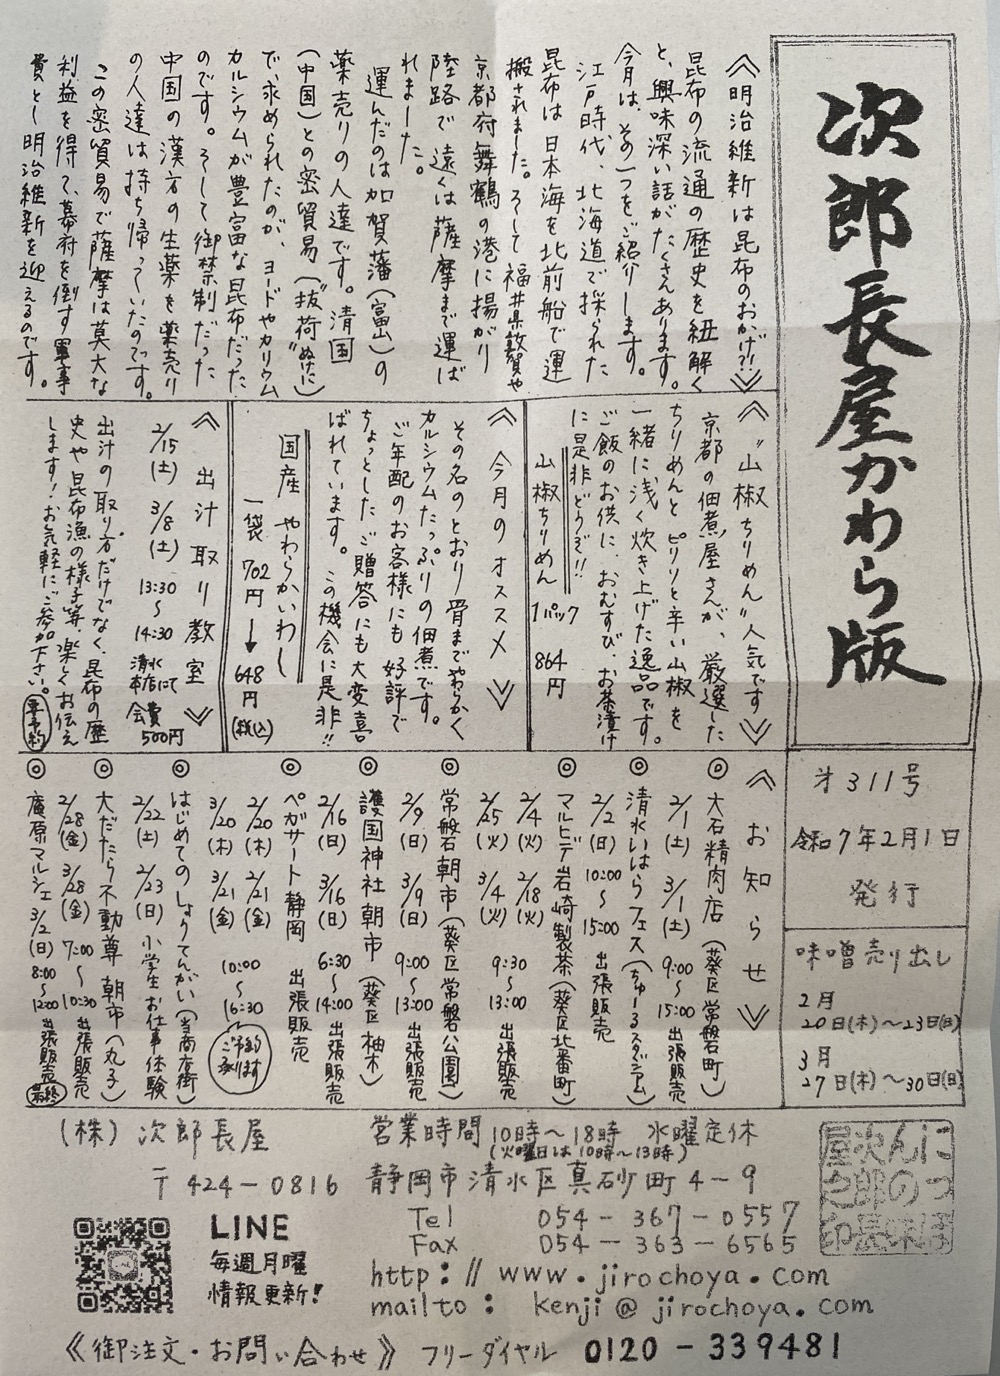 次郎長屋かわら版
才311号
令和7年2月1日
発行
味噌売り出し
2月
20日(木)〜23日(日)
3月
27日(木)〜30日(日)
《明治維新は昆布のおかげ?!》
昆布の流通の歴史を紐解く
と、興味深い話がたくさんあります。
今月は、その一つをご紹介します。
江戸時代、北海道で採られた
昆布は日本海を北前船で運
搬されました。そして福井県敦賀や
京都府舞鶴の港に揚がり
陸路で遠くは薩摩まで運ば
れました。
運んだのは加賀藩(富山)の
薬売りの人達です。清国
(中国)との密貿易("抜荷"ぬけに)
で、求められたのが、ヨードやカリウム
カルシウムが豊富な昆布だった
のです。そして御禁制だった
中国の漢方の生薬を薬売り
の人達は持ち帰っていたのです。
この密貿易で薩摩は莫大な
利益を得て、幕府を倒す軍事
費とし明治維新を迎えるのです。
《"山椒ちりめん"人気です》
京都の佃煮屋さんが、厳選した
ちりめんとピリリと辛い山椒を
一緒に浅く炊き上げた逸品です。
ご飯のお供に、おむすび、お茶漬け
に是非どうぞ!!
山椒ちりめん 1パック 864円
《今月のオススメ》
その名のとおり骨までやわらかく
カルシウムたっぷりの佃煮です。
ご年配のお客様にも好評で
ちょっとしたご贈答にも大変喜
ばれています。この機会に是非!!
国産 やわらかいわし
一袋 702円→648円(税込)
《出汁取り教室》
2/15(土) 3/8(土) 13:30〜14:30 清水本店にて 会費500円
出汁の取り方だけでなく、昆布の歴
史や昆布漁の様子等、楽しくお伝え
します!お気軽にご参加下さい。要予約
《お知らせ》
◎大石精肉店(葵区常磐町)
2/1(土) 3/1(土) 9:00〜15:00 出張販売
◎清水いはらフェス(ちゅ〜るスタジアム)
2/2(日) 10:00〜15:00 出張販売
◎マルヒデ岩崎製茶(葵区北番町)
2/4(火) 2/18(火) 9:30〜13:00 出張販売
2/25(火) 3/4(火)
◎常磐朝市(葵区常磐公園)
2/9(日) 3/9(日) 9:00〜13:00 出張販売
◎護国神社朝市(葵区柚木)
2/16(日) 3/16(日) 6:30〜14:00 出張販売
ペガサート静岡 出張販売
2/20(木) 2/21(金) 10:00〜16:30 ご予約承ります
3/20(木) 3/21(金)
◎はじめてのしょうてんがい(当商店街)
2/22(土) 2/23(日) 小学生お仕事体験
◎大だたら不動尊 朝市(丸子)
2/28(金) 3/28(金) 7:00〜10:30 出張販売
◎廣原マルシェ 3/2(日) 8:00〜12:00 出張販売 最終
(株)次郎長屋 営業時間 10時〜18時 水曜定休
(火曜日は10時〜13時)
〒424-0816 静岡市清水区真砂町4-9
LINE
毎週月曜
情報更新!
Tel 054-367-0557
Fax 054-363-6565
http://www.jirochoya.com
mailto: kenji@jirochoya.com
にっぽんの味
次郎長屋之印
《御注文・お問い合わせ》 フリーダイヤル 0120-339481